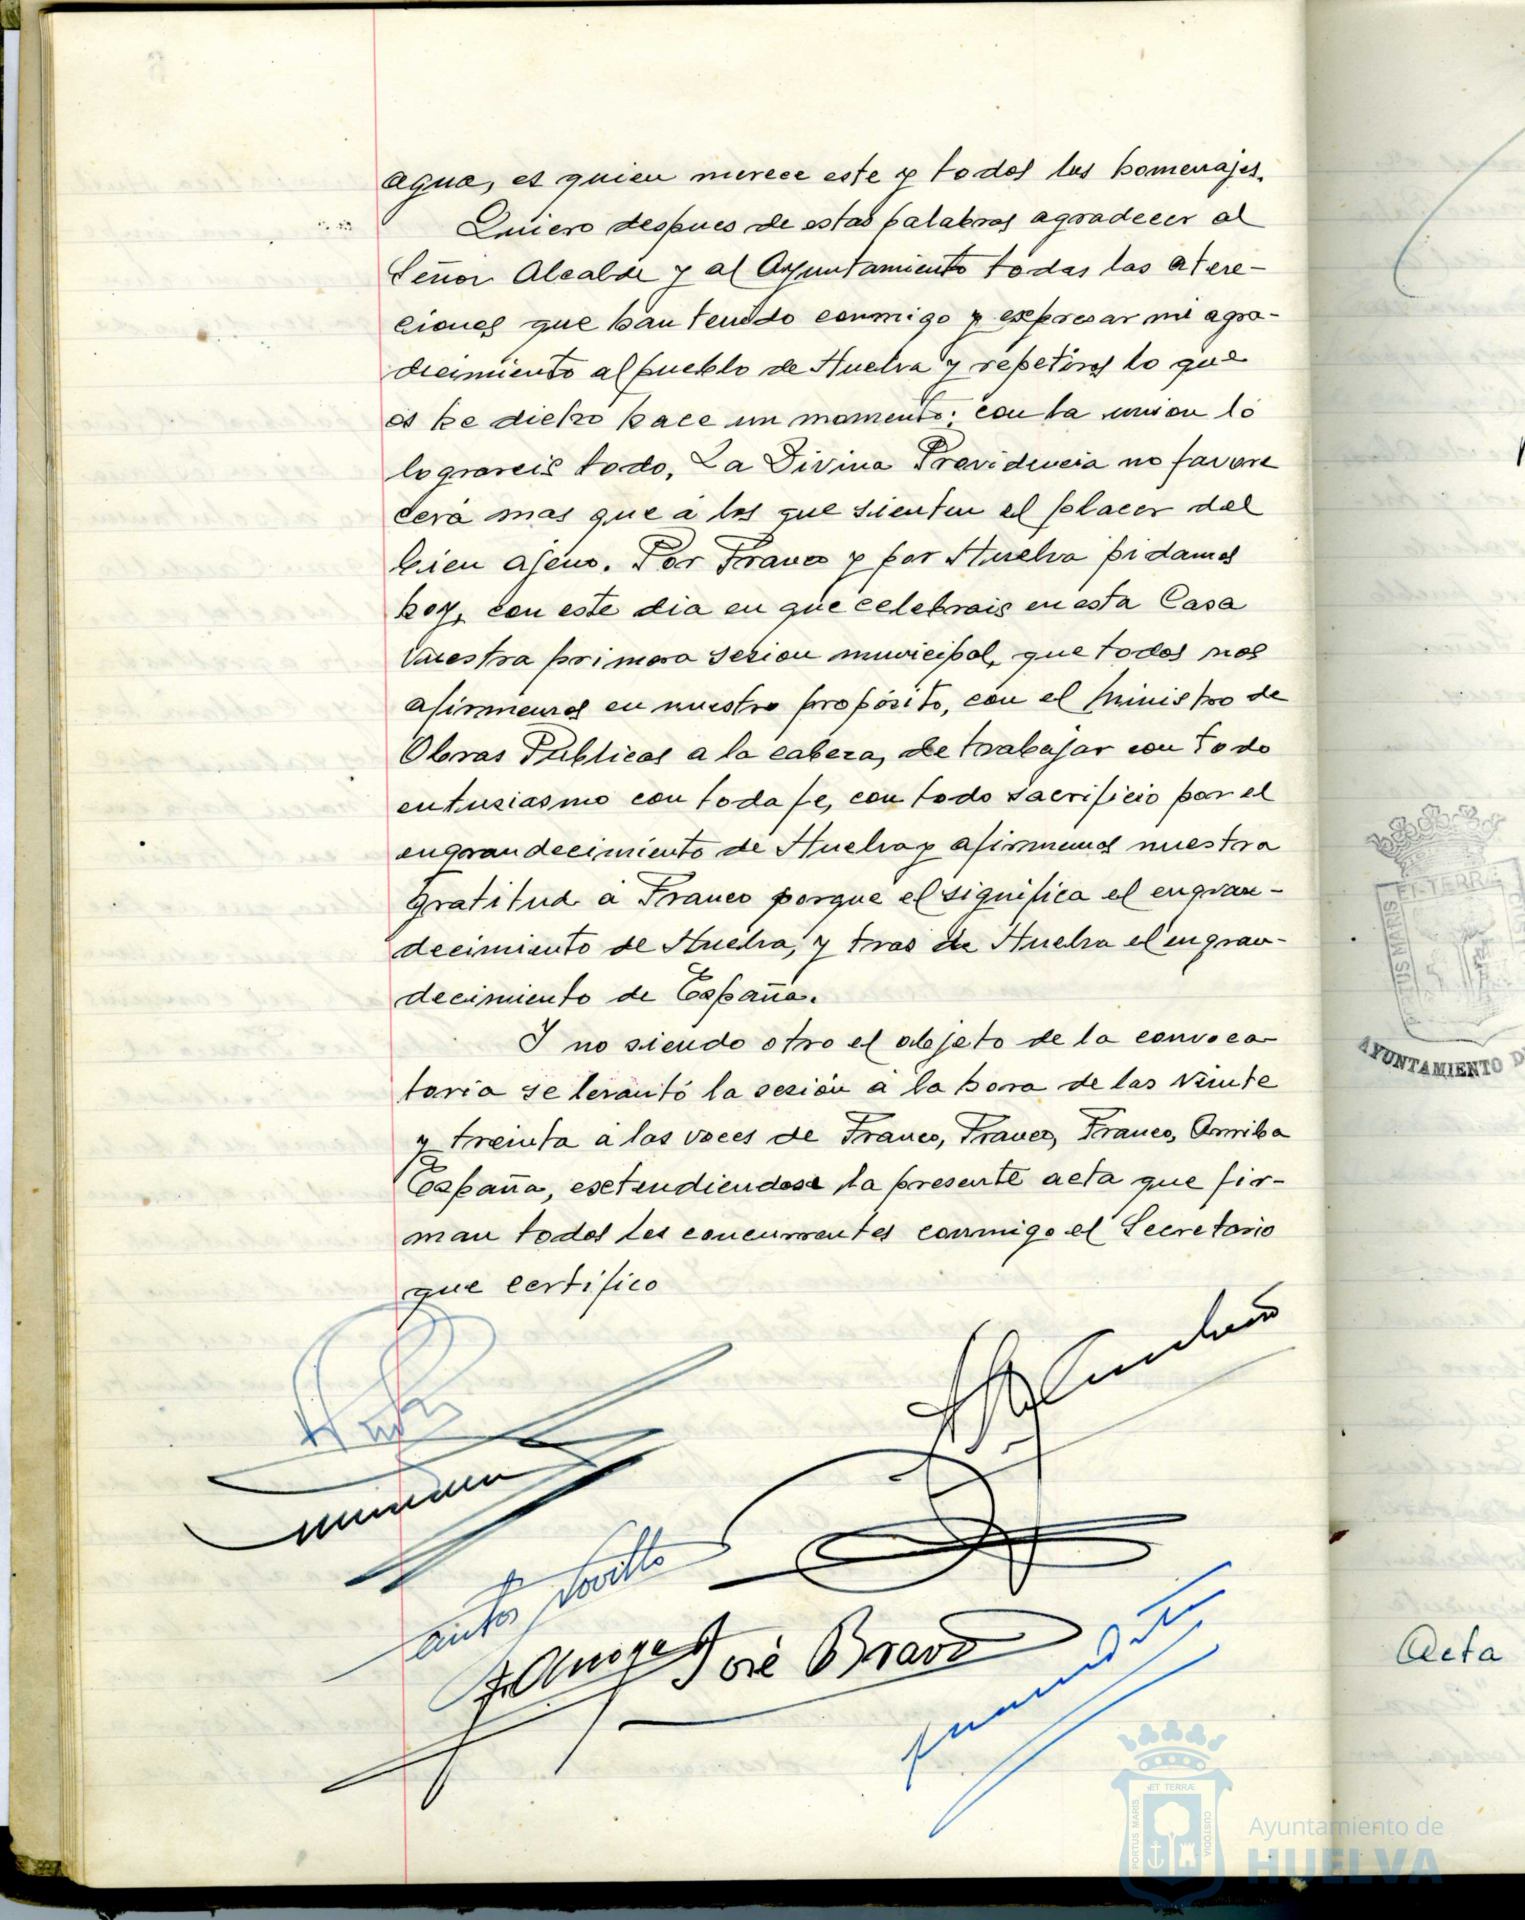 agua, es quien merece este y todos los homenajes.
Quiero despues de estas palabras agradecer al
Señor Alcalde y al Ayuntamiento todas las aten-
ciones que han tenido conmigo y expresar mi agra-
decimiento al pueblo de Huelva y repetiros lo que
os he dicho hace un momento: con la union lo
lograreis todo. La Divina Providencia no favore
cerá mas que á los que sienten el placer del
bien ajeno. Por Franco y por Huelva pidamos
hoy, con este dia en que celebrais en esta Casa
vuestra primera sesion municipal, que todos nos
afirmemos en nuestro propósito, con el Ministro de
Obras Publicas a la cabeza, de trabajar con todo
entusiasmo con toda fe, con todo sacrificio por el
engrandecimiento de Huelva y afirmemos nuestra
gratitud á Franco porque el significa el engran-
decimiento de Huelva, y tras de Huelva el engran-
decimiento de España.
Y no siendo otro el objeto de la convoca-
toria se levantó la sesión á la hora de las veinte
y treinta á las voces de Franco, Franco, Franco, Arriba
España, extendiendose la presente acta que fir-
man todos los concurrentes conmigo el Secretario
que certifico
José Bravo
ET TERRÆ
PORTUS MARIS
CUSTODIA
Ayuntamiento de
HUELVA
ET TERRÆ
AYUNTAMIENTO D
Acta